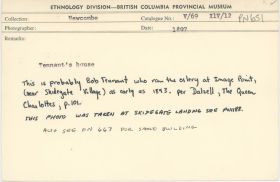 ETHNOLOGY DIVISION—BRITISH COLUMBIA PROVINCIAL MUSEUM
Collection: Newcombe Catalogue No.: F/69 XIV/12 PN651
Photographer: Date: 1897
Remarks:
Tennant's house
This is probably Bob Tennant who ran the oilery at Image Point,
(near Skidegate Village) as early as 1893. per Dalzell, The Queen
Charlottes, p.101.
THIS PHOTO WAS TAKEN AT SKIDEGATE LANDING SEE
ALSO SEE PN 667 FOR SAME BUILDING